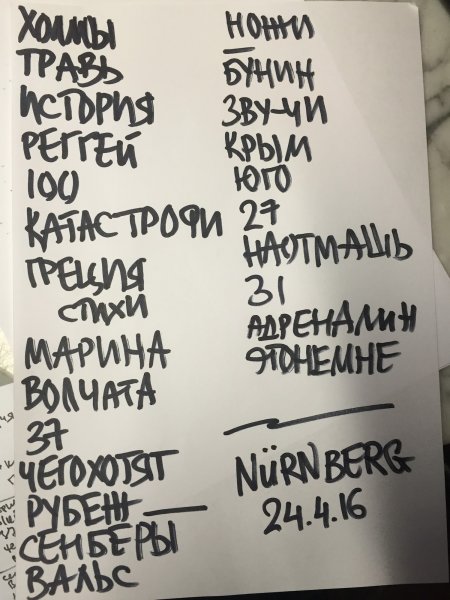 ХОЛМЫ
ТРАВЬ
ИСТОРИЯ
РЕГГЕЙ
100
КАТАСТРОФИ
ГРЕЦИЯ
СТИХИ
МАРИНА
ВОЛЧАТА
37
ЧЕГОХОТЯТ
РУБЕЖ
СЕНБЕРЫ
ВАЛЬС
НОЖИ
БУНИН
ЗВУЧИ
КРЫМ
ЮГО
27
НАОТМАШЬ
31
АДРЕНАЛИН
ЭТОНЕМНЕ
NÜRNBERG
24.4.16